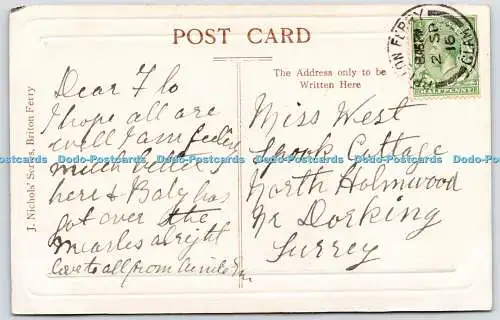 POST CARD
J. Nichols' Series, Briton Ferry
Dear Flo
I hope all are
well I am feeling
much better
here & Baby has
got over the
measles alright
love to all from
The Address only to be
Written Here
Miss West
Cottage
North Holmwood
Nr Dorking
Surrey
ON FERRY
GLAM
2 SP
16
HALFPENNY
Dodo-Postcards Dodo-Postcards Dodo-Postcards Dodo-Postcards Dodo-Postcards